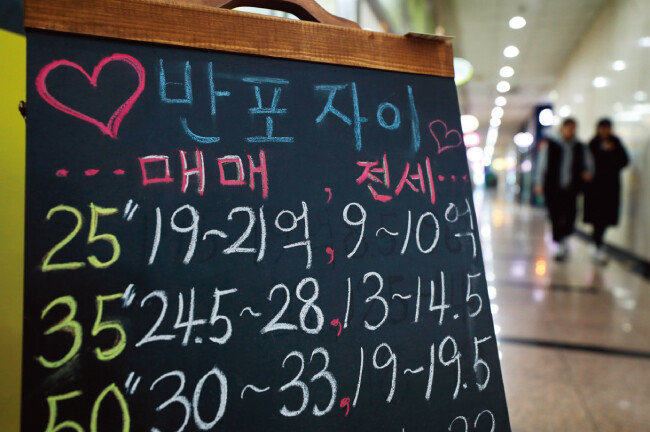 반포 자이
···매매, 전세···
25" 19~21억, 9~10억
35" 24.5~28, 13~14.5
50" 30~33, 19~19.5